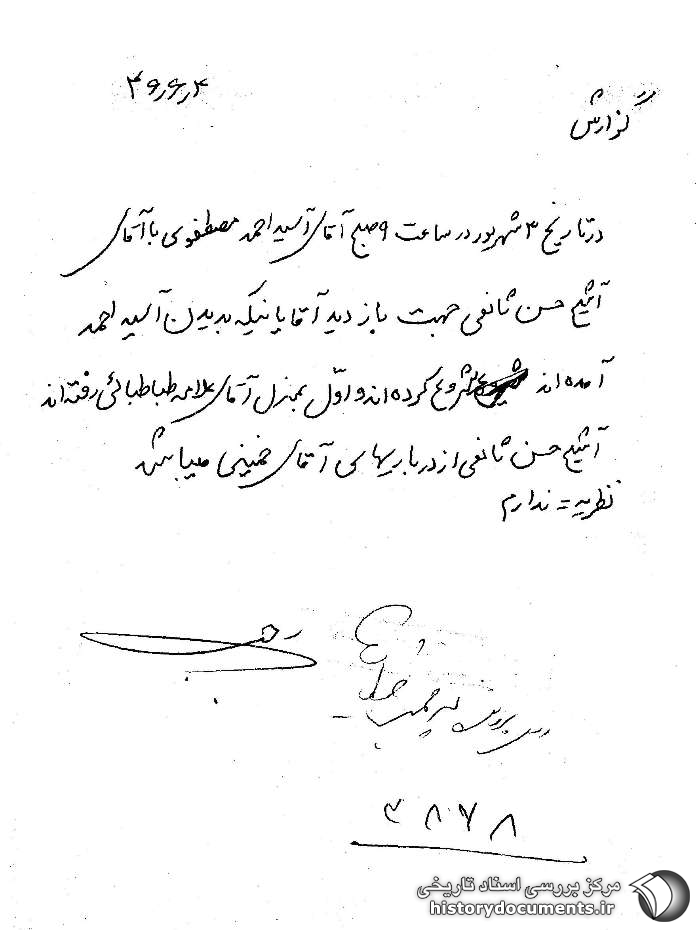 ۴ر۶ر۴۶
گزارش
در تاریخ ۳ شهریور در ساعت ۹ صبح آقای آسید احمد مصطفوی با آقای
آشیخ حسن ثانفی جهت بازدید آقایانیکه بدیدن آسید احمد
آمده اند شروع کرده اند و اوّل بمنزل آقای علامه طباطبائی رفته اند
آشیخ حسن ثانفی از درباریهای آقای خمینی میباشد
نظریه = ندارم
۳۸۷۸
مرکز بررسی اسناد تاریخی
historydocuments.ir